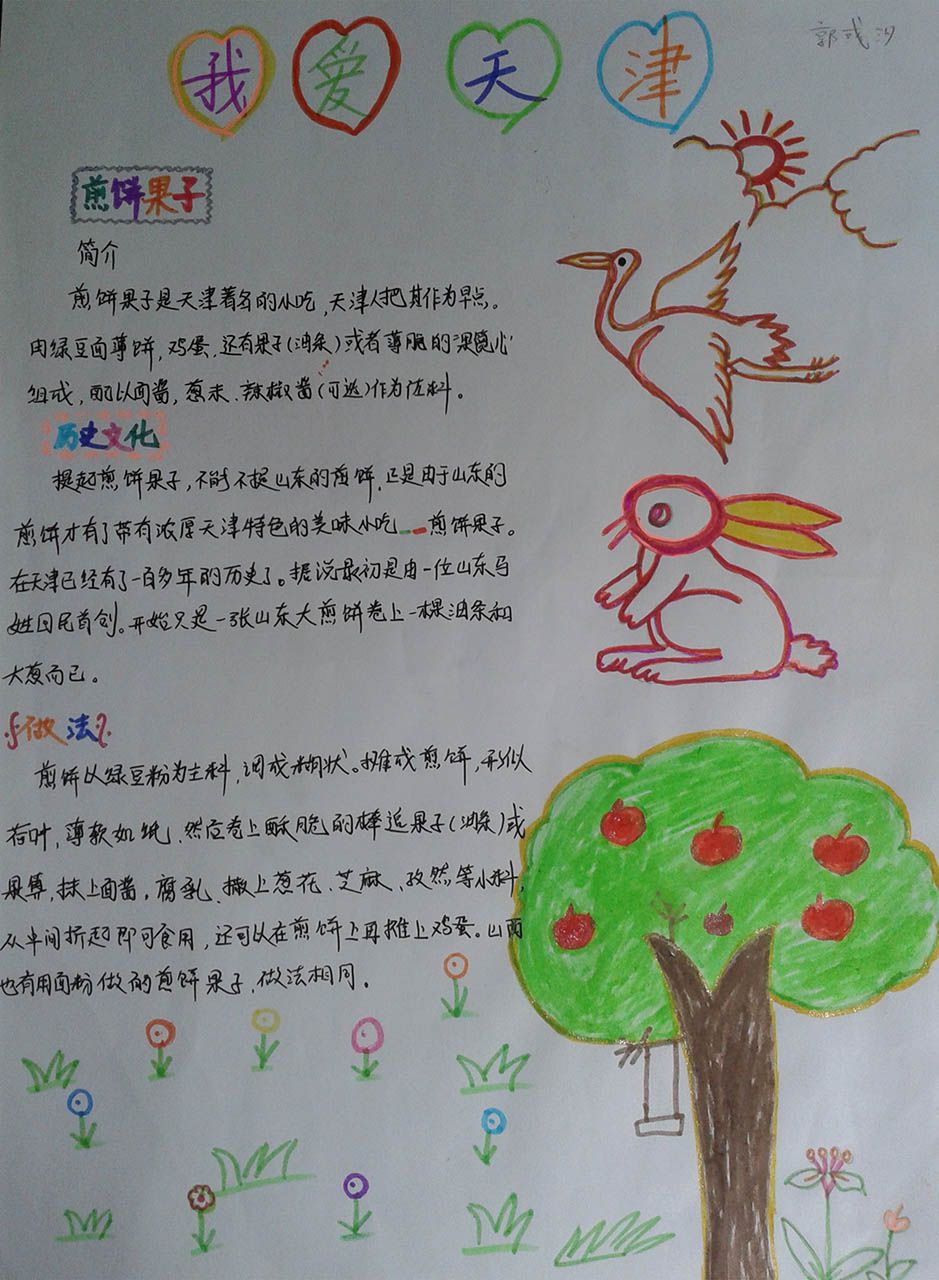 我爱天津
郭彧汐
煎饼果子
简介
煎饼果子是天津著名的小吃,天津人把其作为早点。
由绿豆面薄饼,鸡蛋,还有果子(油条)或者薄脆的馃篦儿
组成,配以面酱,葱末、辣椒酱(可选)作为佐料。
历史文化
提起煎饼果子,不能不提山东的煎饼,正是由于山东的
煎饼才有了带有浓厚天津特色的美味小吃——煎饼果子。
在天津已经有了一百多年的历史了。据说最初是由一位山东马
姓回民首创。开始只是一张山东大煎饼卷上一棵油条和
大葱而已。
做法
煎饼以绿豆粉为主料,调成糊状。摊成煎饼,形似
荷叶,薄软如纸,然后卷上酥脆的棒近果子(油条)或
果箅,抹上面酱,腐乳、撒上葱花、芝麻、孜然等小料,
从中间折起即可食用,还可以在煎饼上再摊上鸡蛋。山西
也有用面粉做的煎饼果子,做法相同。